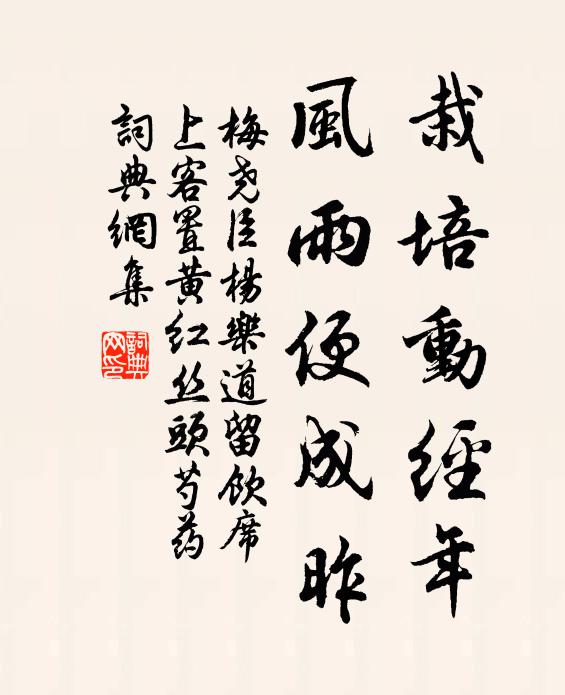 栽培動經年
風雨便成昨
梅尧臣楊樂道留飲席
上客置黄红丝頭芍药
詞典網集
詞典
网印